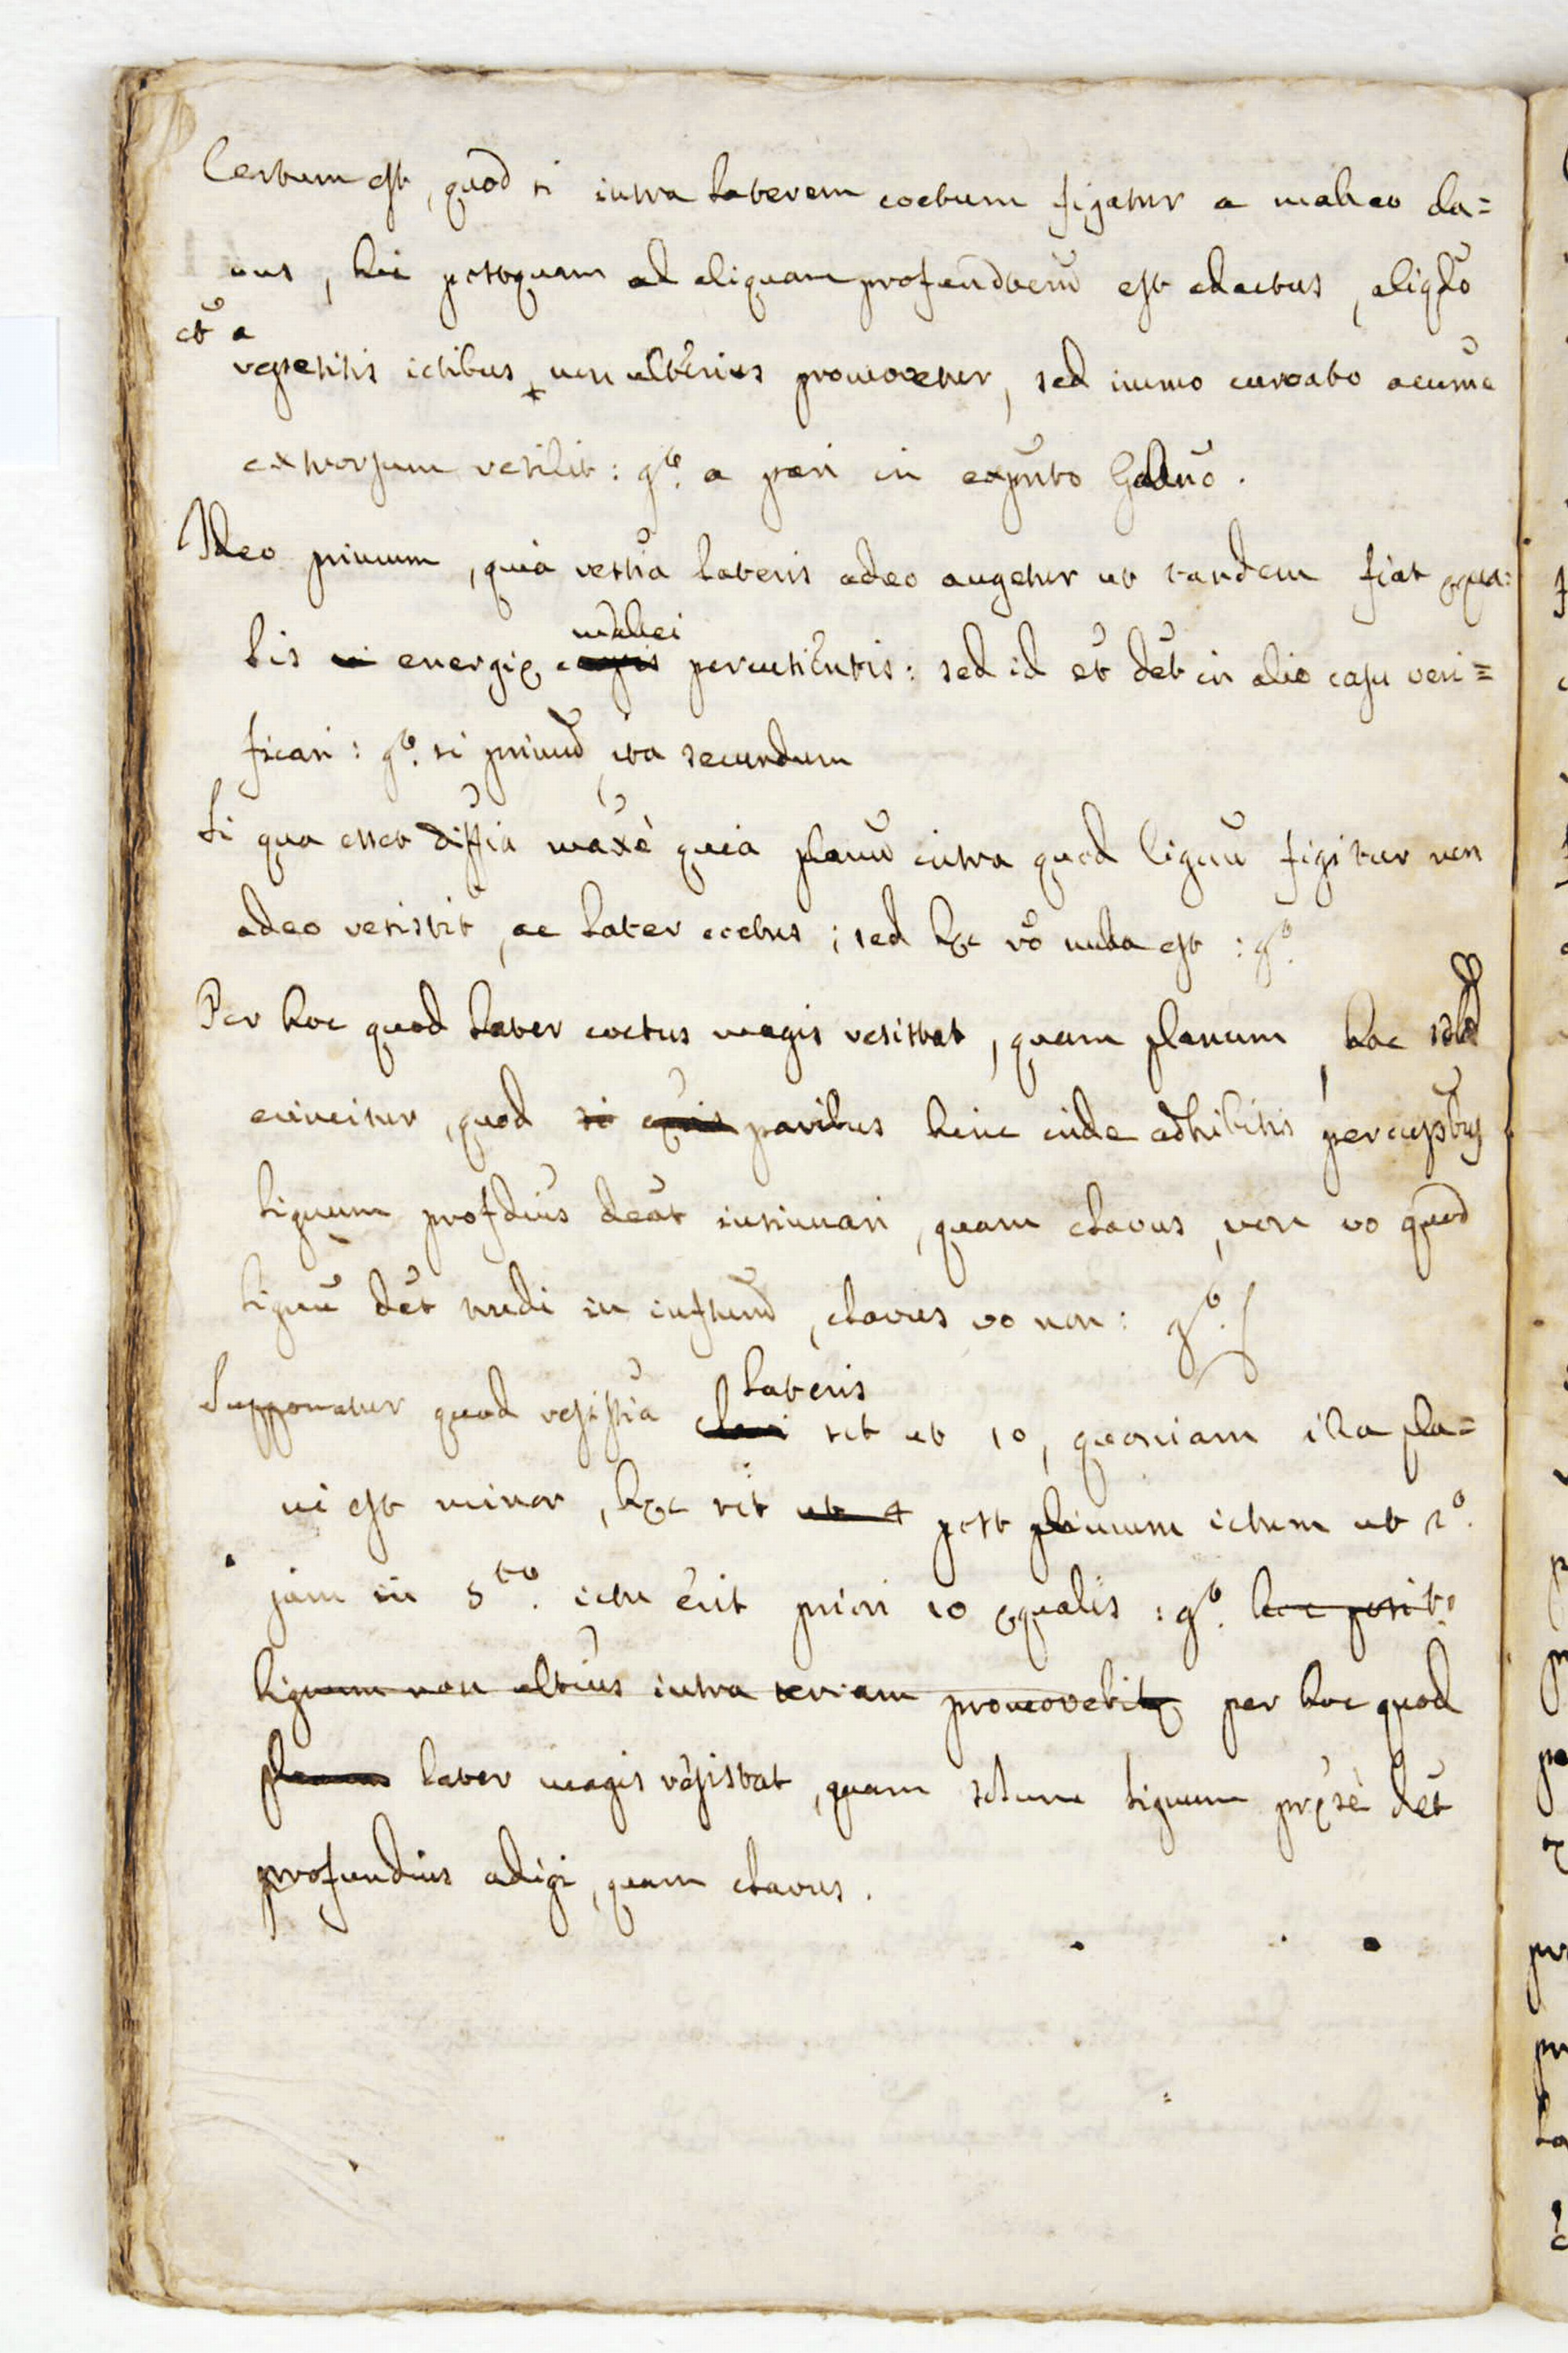 Certum est, quod si intra laterem coctum figatur a malleo cla=
vus, hic postquam ad aliquam profunditem est adactus, aliqdo
et a
repetitis ictibus + non ulterius promovetur, sed immo curvato acumine
extrorsum resilit: gº. a pari in expmto
Ideo primum, quia restia lateris adeo augetur ut tandem fiat equa=
mallei
lis in energię percutientis: sed id et det in alio casu veri=
ficari: gº. si primu, ita secundum
Si qua esset diffia maxe quia planu intra quod lignu figitur non
adeo resistit, ac later coctus; sed hęc ro nulla est: gº.
Per hoc quod later coctus magis resistat, quam planum, hoc
evincitur, quod si paribus hinc inde adhibitis
lignum profdius deat insinuari, quam clavus, non vo quod
lignu det trudi in infinitu, clavus vo non: gº.
lateris
Supponatur quod resistia clavi sit ut 10, quoniam illa pla=
ni est minor, hęc sit ut 4 post primum ictum ut 2º.
jam in 5to. ictu erit priori 10 ęqualis: gº. hoc posito
lignum non altius intra terram promovebitę per hoc quod
planum later magis resistat, quam solum lignum pręse det
profundius adigi, quam clavus.